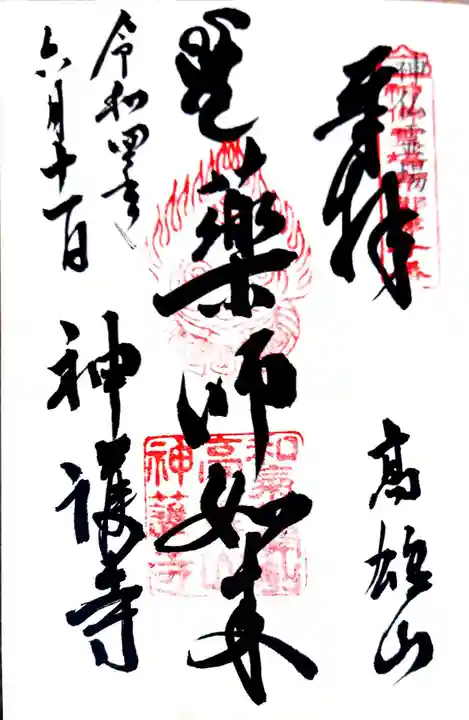 奉拝
高雄山
薬師如来
令和四年
六月十一日
神護寺
神仏霊場
和気
高雄山
神護寺